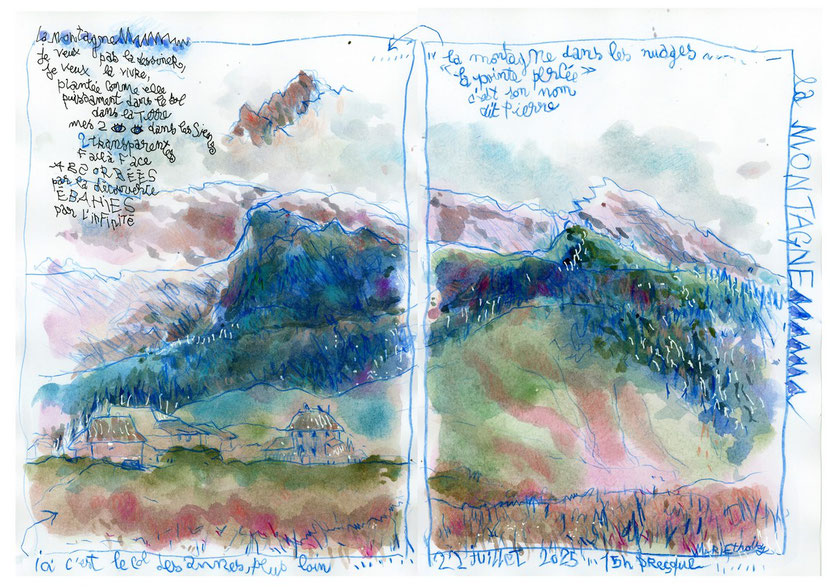 la montagne
Je veux pas la dessiner,
Je veux la vivre,
plantée comme elle
puissament dans le sol
dans la Terre
mes 2 dans les siens
2 transparents
Face à Face
ABSORBÉES
par la découverte
ÉBAHIES
par l'infinité
"la montagne dans les nuages
"la pointe percée"
c'est son nom
dit Pierre
la MONTAGNE
ici c'est le col des annes, plus loin
22 Juillet 2025 15h presque